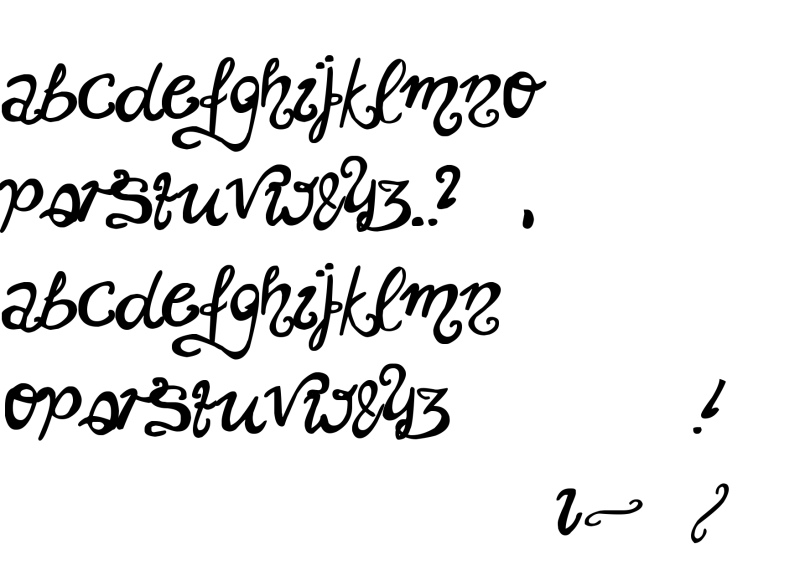 abcdefghijklmno
pqrstuvwxyz..? ,
abcdefghijklmn
opqrstuvwxyz !